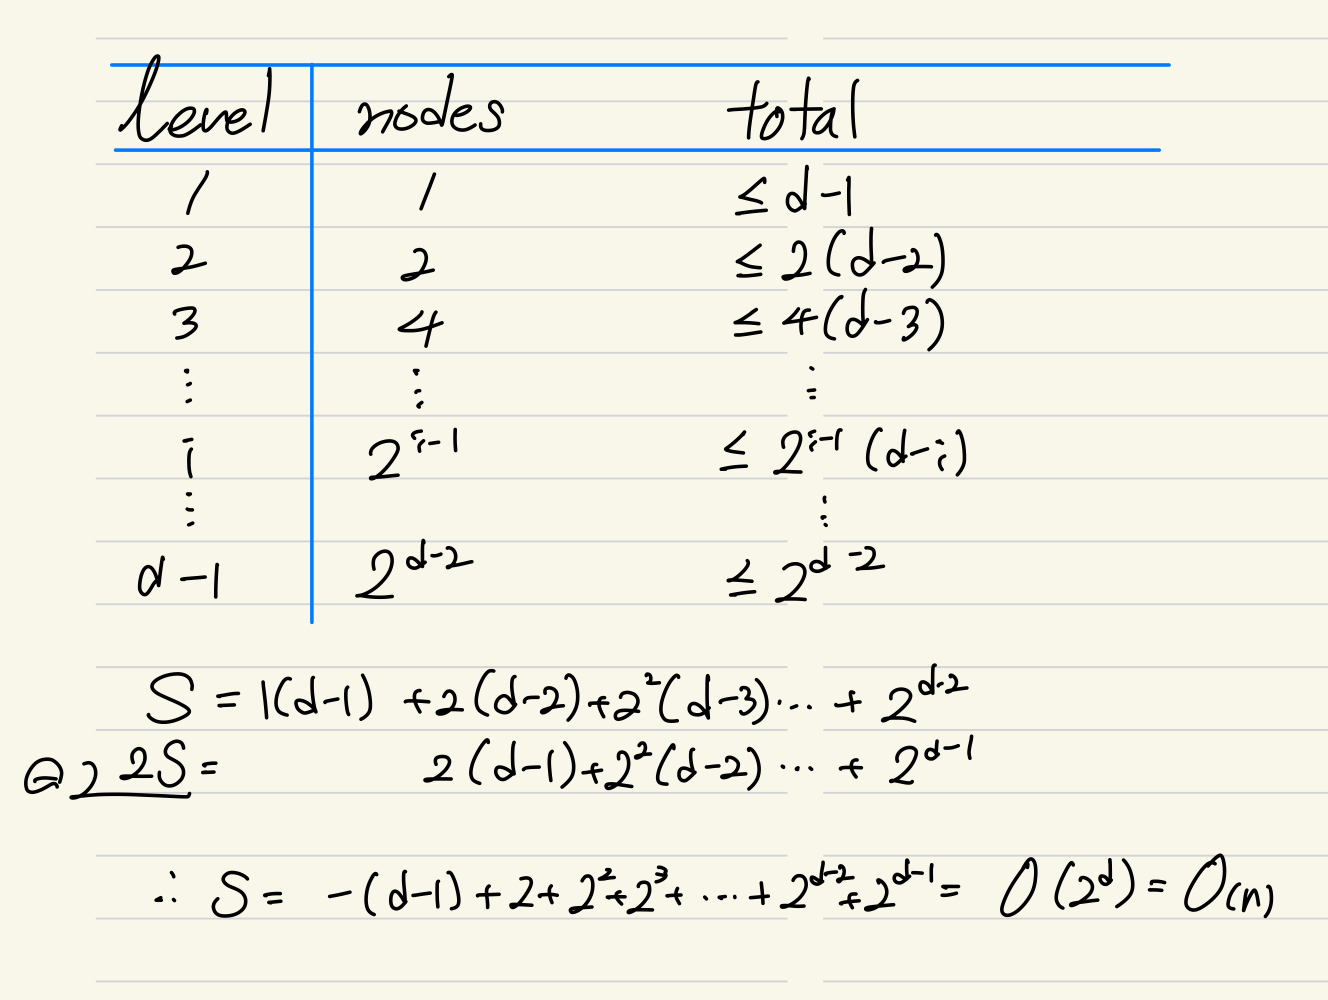 level nodes total
1 1 ≤ d-1
2 2 ≤ 2(d-2)
3 4 ≤ 4(d-3)
⋮ ⋮ ⋮
i 2^{i-1} ≤ 2^{i-1} (d-i)
⋮ ⋮
d-1 2^{d-2} ≤ 2^{d-2}
S = 1(d-1) + 2(d-2) + 2^2(d-3) ⋯ + 2^{d-2}
2S = 2(d-1) + 2^2(d-2) ⋯ + 2^{d-1}
∴ S = -(d-1) + 2 + 2^2 + 2^3 + ⋯ + 2^{d-2} + 2^{d-1} = O(2^d) = O(n)